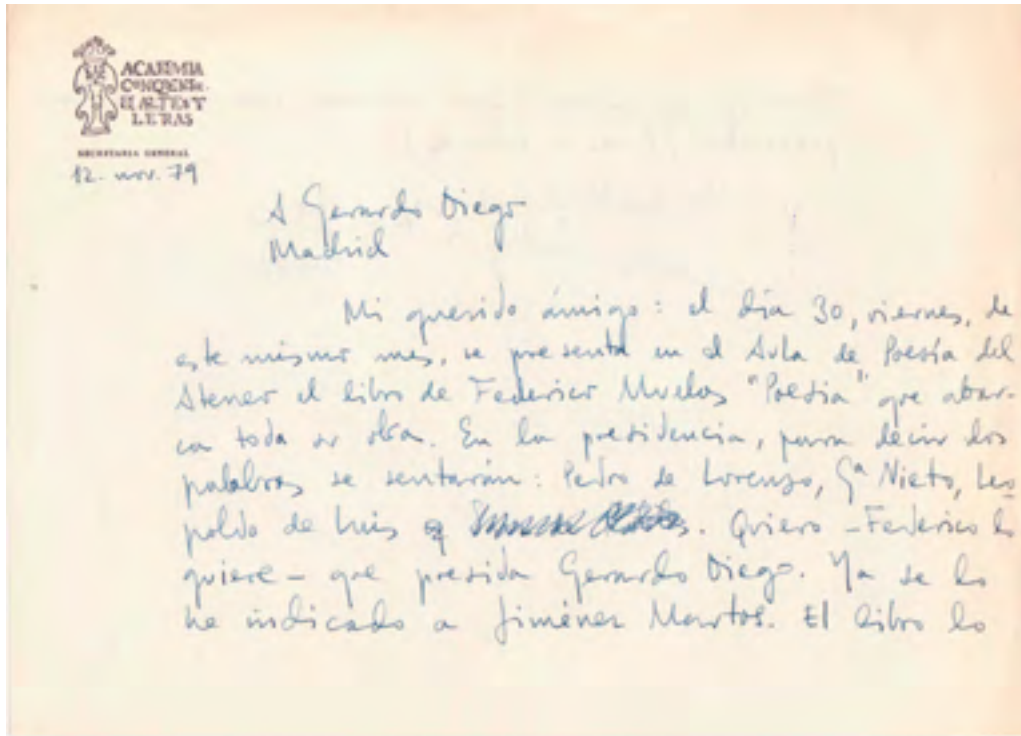 ACADEMIA
CONQUENSE
DE ARTES Y
LETRAS
SECRETARIA GENERAL
12. nov. 79
A Gerardo Diego
Madrid
Mi querido ámigo: el día 30, viernes, de
este mismo mes, se presenta en el Aula de Poesía del
Ateneo el libro de Federico Muelas "Poesía" que abar-
ca toda su obra. En la presidencia, para decir dos
palabras se sentarán: Pedro de Lorenzo, Gª Nieto, Leo
poldo de Luis y . Quiero – Federico lo
quiere – que presida Gerardo Diego. Ya se lo
he indicado a Jiménez Martos. El libro lo